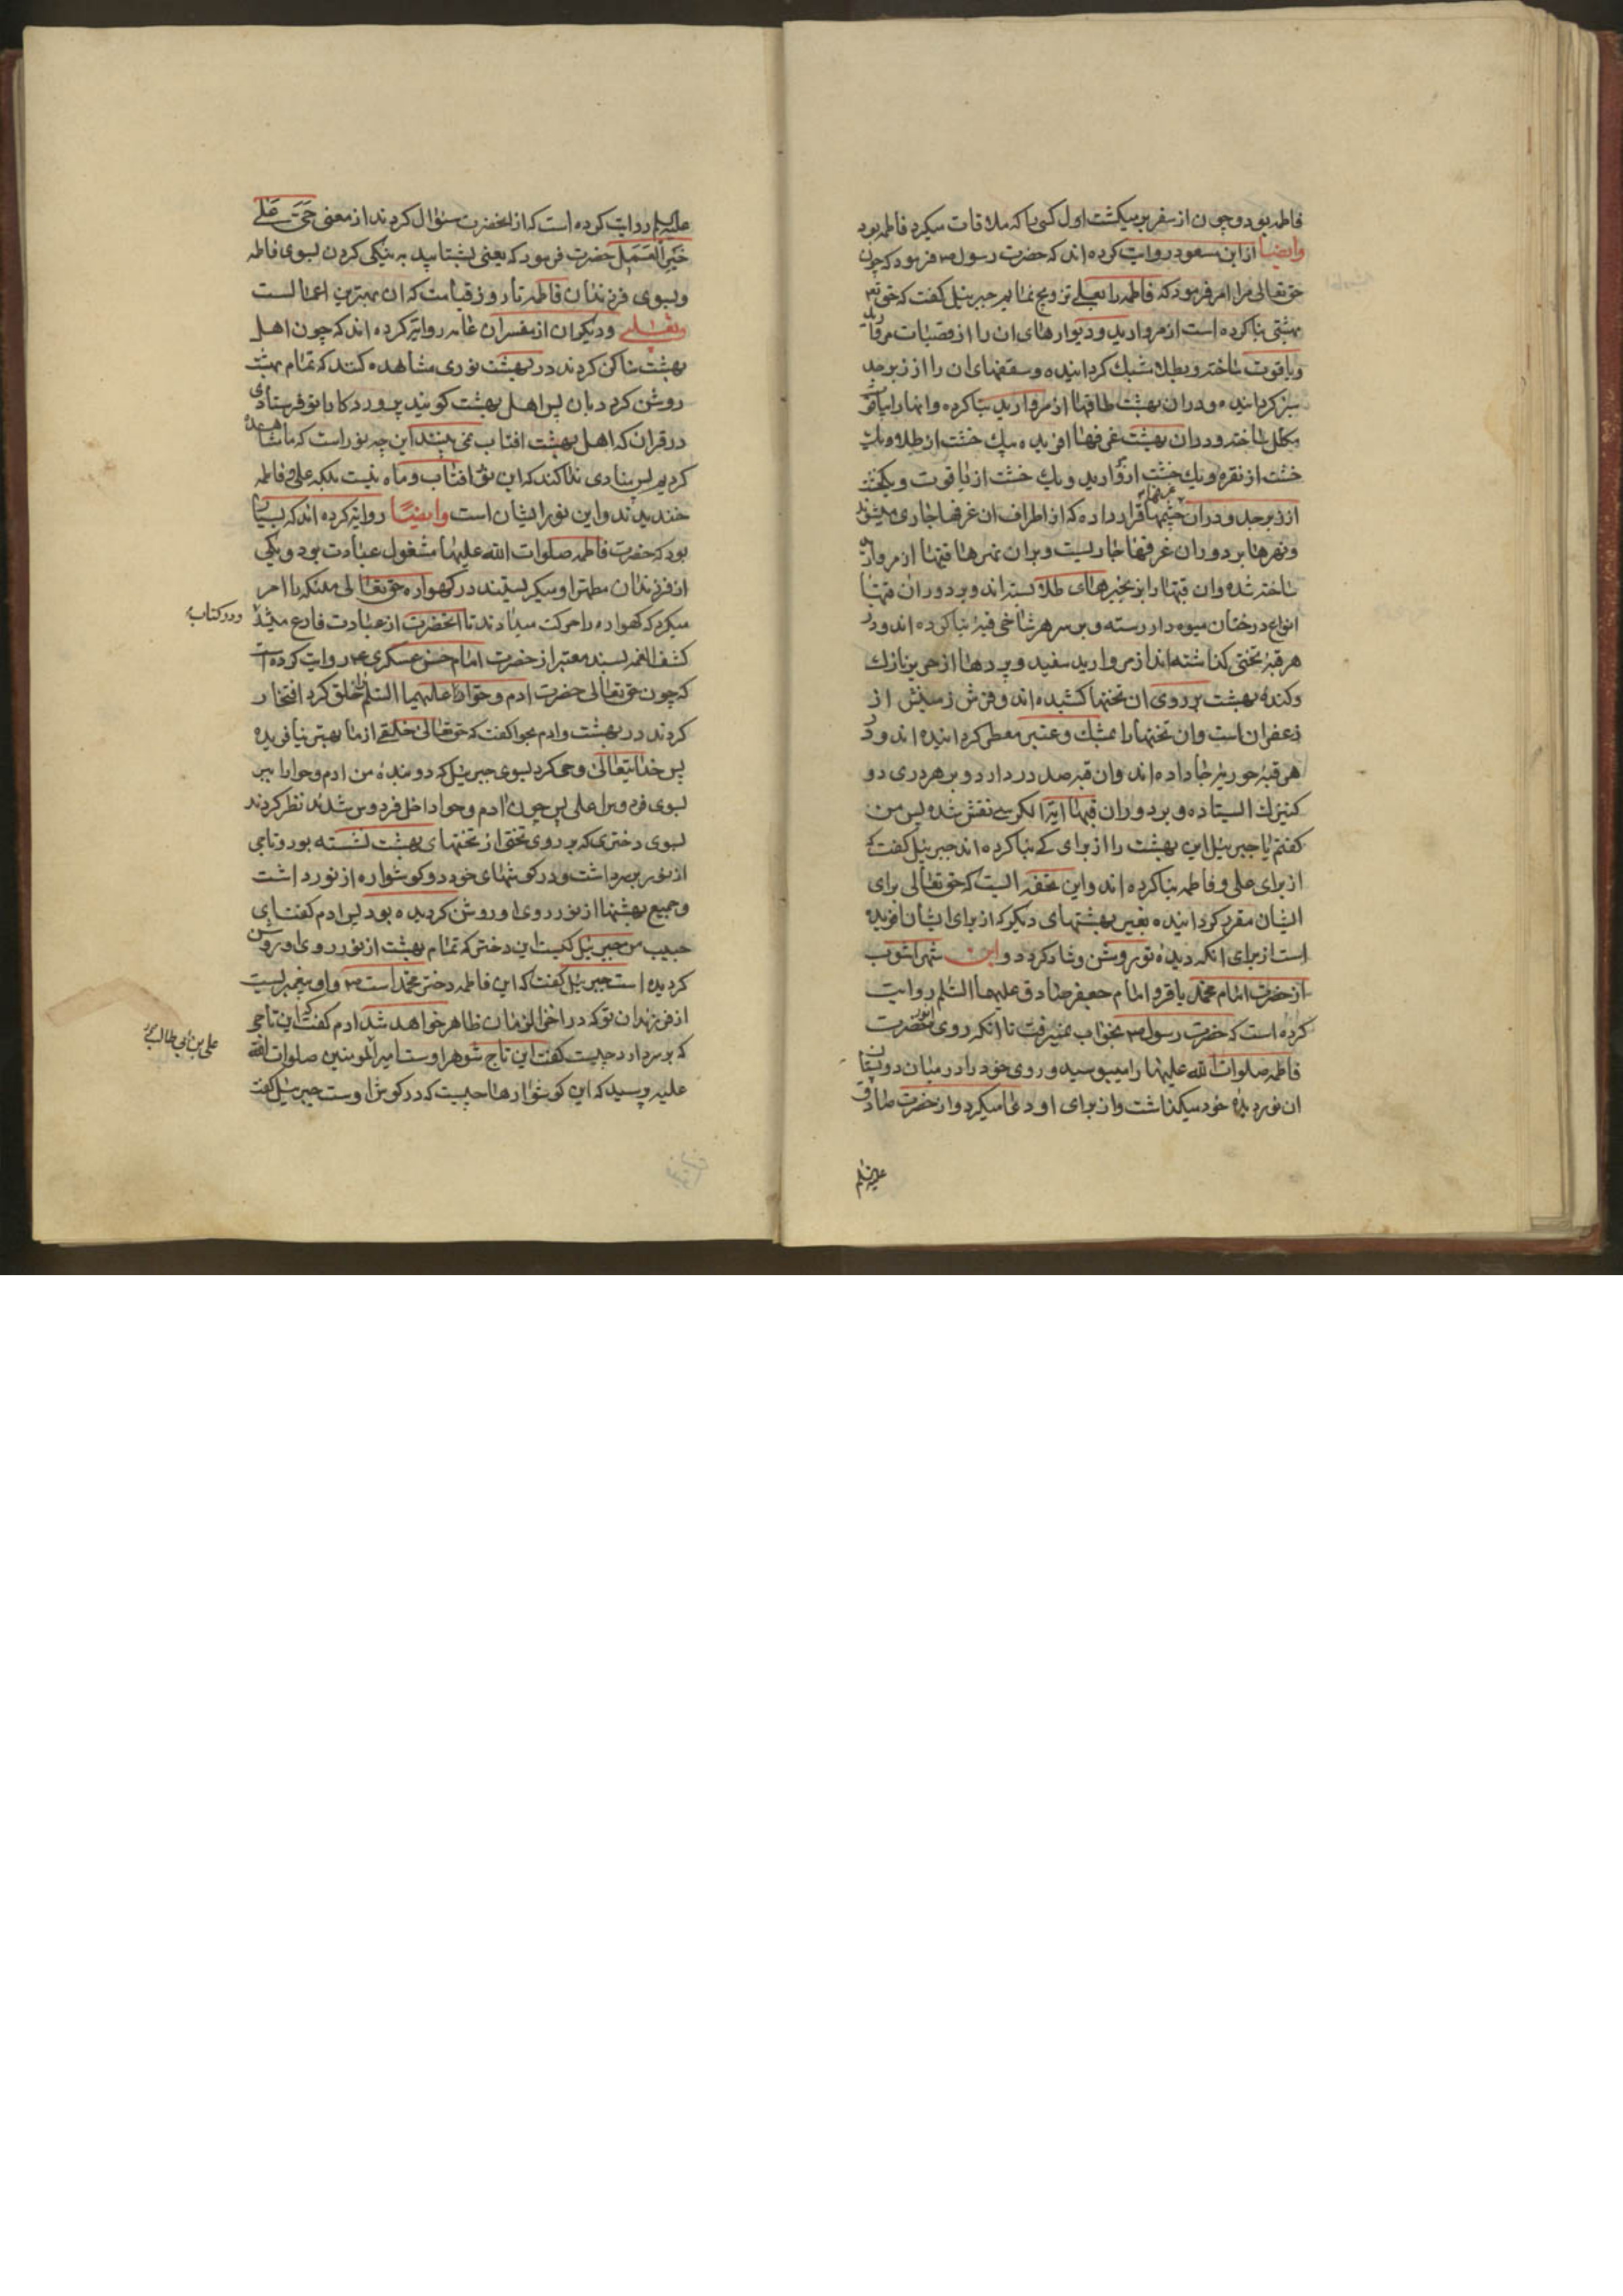 فاطمه بود و چون از سفر برمیکشت اول کسی را که ملاقات میکرد فاطمه بود
وایضا از ابن مسعود روایت کرده اند که حضرت رسول ص فرمود که چون
حق تعالی مرا امر فرمود که فاطمه را بعلی تزویج نمایم جبرئیل کفت که حق تع
بهشتی بنا کرده است از مروارید و دیوارهای ان را از قصبات مروارید
و یاقوت ساخته و بطلا مشبک کردانیده و سقفهای ان را از زبرجد
سبز کردانیده و در ان بهشت طاقها از مروارید بنا کرده و انها را بیاقوت
مکلل ساخته و در ان بهشت غرفها افریده یک خشت از طلا و یک
خشت از نقره و یک خشت از مروارید و یک خشت از یاقوت و یکخشت
از زبرجد و در ان چشمها قرار داده که از اطراف ان غرفها جاری میشوند
و نهرها بر دور ان غرفها جاریست و بر ان نهرها قبها از مروارید
ساخته شده و ان قبها را بزنجیرهای طلا بسته اند و بر دور ان قبها
انواع درختان میوه دار رسته و بر سر هر شاخی قبهٔ بنا کرده اند و در
هر قبهٔ تختی کذاشته اند از مروارید سفید و پردها از حریر نازک
و کندهٔ بهشت بر روی ان تختها کشیده اند و فرش زمینش از
زعفران است و ان تختها را بمشک و عنبر معطر کردانیده اند و در
هر قبهٔ حوریهٔ جا داده اند و ان قبه صد در دارد و بر هر دری دو
کنیزک ایستاده و بر دور ان قبها ایة الکرسی نقش شده پس من
کفتم یا جبرئیل این بهشت را از برای که بنا کرده اند جبرئیل کفت که
از برای علی و فاطمه بنا کرده اند و این تحفه ایست که حق تعالی برای
ایشان مقرر کردانیده بغیر بهشتهای دیکر که از برای ایشان افریده
است از برای انکه دیدهٔ تو روشن و شاد کردد و ابن شهراشوب
از حضرت امام محمد باقر و امام جعفر صادق علیهما السلم روایت
کرده است که حضرت رسول ص بخواب نمیرفت تا انکه روی انور حضرت
فاطمه صلوات الله علیها را میبوسید و روی خود را در میان دو پستان
ان نور دیدهٔ خود میکذاشت و از برای او دعا میکرد و از حضرت صادق
علیه السلم
علیه السلم روایت کرده است که از انحضرت سؤال کردند از معنی حَیَّ عَلی
خَیْرِ الْعَمَل حضرت فرمود که یعنی بشتابید به نیکی کردن بسوی فاطمه
و بسوی فرزندان فاطمه تا روز قیامت که ان بهترین اعمالست
وثعلبی و دیکران از مفسران عامه روایة کرده اند که چون اهل
بهشت ساکن کردند در بهشت نوری مشاهده کنند که تمام بهشت
روشن کردد بان پس اهل بهشت کویند پروردکارا تو فرستادی
در قران که اهل بهشت افتاب نمی بینند این چه نور است که ما مشاهده
کردیم پس منادی ندا کند که این نور افتاب و ماه نیست بلکه علی و فاطمه
خندیدند و این نور ایشان است وایضًا روایة کرده اند که بسیار
بود که حضرت فاطمه صلوات الله علیها مشغول عبادت بود و یکی
از فرزندان مطهر او میکریستند در کهواره حق تعالی ملئکه را امر
میکرد که کهواره را حرکت میدادند تا انحضرت از عبادت فارغ میشد
و در کتاب
کشف الغمه بسند معتبر از حضرت امام حسن عسکری ع روایت کرده است
که چون حق تعالی حضرت ادم و حوا را علیهما السلم خلق کرد افتخار
کردند در بهشت و ادم بحوا کفت که حق تعالی خلقی از ما بهتر نیافریده
پس خدایتعالی وحی کرد بسوی جبرئیل که دو بندهٔ من ادم و حوا را ببر
بسوی فردوس اعلی پس چون ادم و حوا داخل فردوس شدند نظر کردند
بسوی دختری که بر روی تختی از تختهای بهشت نشسته بود و تاجی
از نور بر سر داشت و در کوشهای خود دو کوشواره از نور داشت
و جمیع بهشتها از نور روی او روشن کردیده بود پس ادم کفت ای
حبیب من جبرئیل کیست این دختر که تمام بهشت از نور روی او روشن
کردیده است جبرئیل کفت که این فاطمه دختر محمد است ص و او پیغمبریست
از فرزندان تو که در اخر الزمان ظاهر خواهد شد ادم کفت که این تاج
که بر سر دارد چیست کفت این تاج شوهر اوست امیر المومنین صلوات الله
علی بن ابی طالب
علیه پرسید که این کوشوارها چیست که در کوش اوست جبرئیل کفت